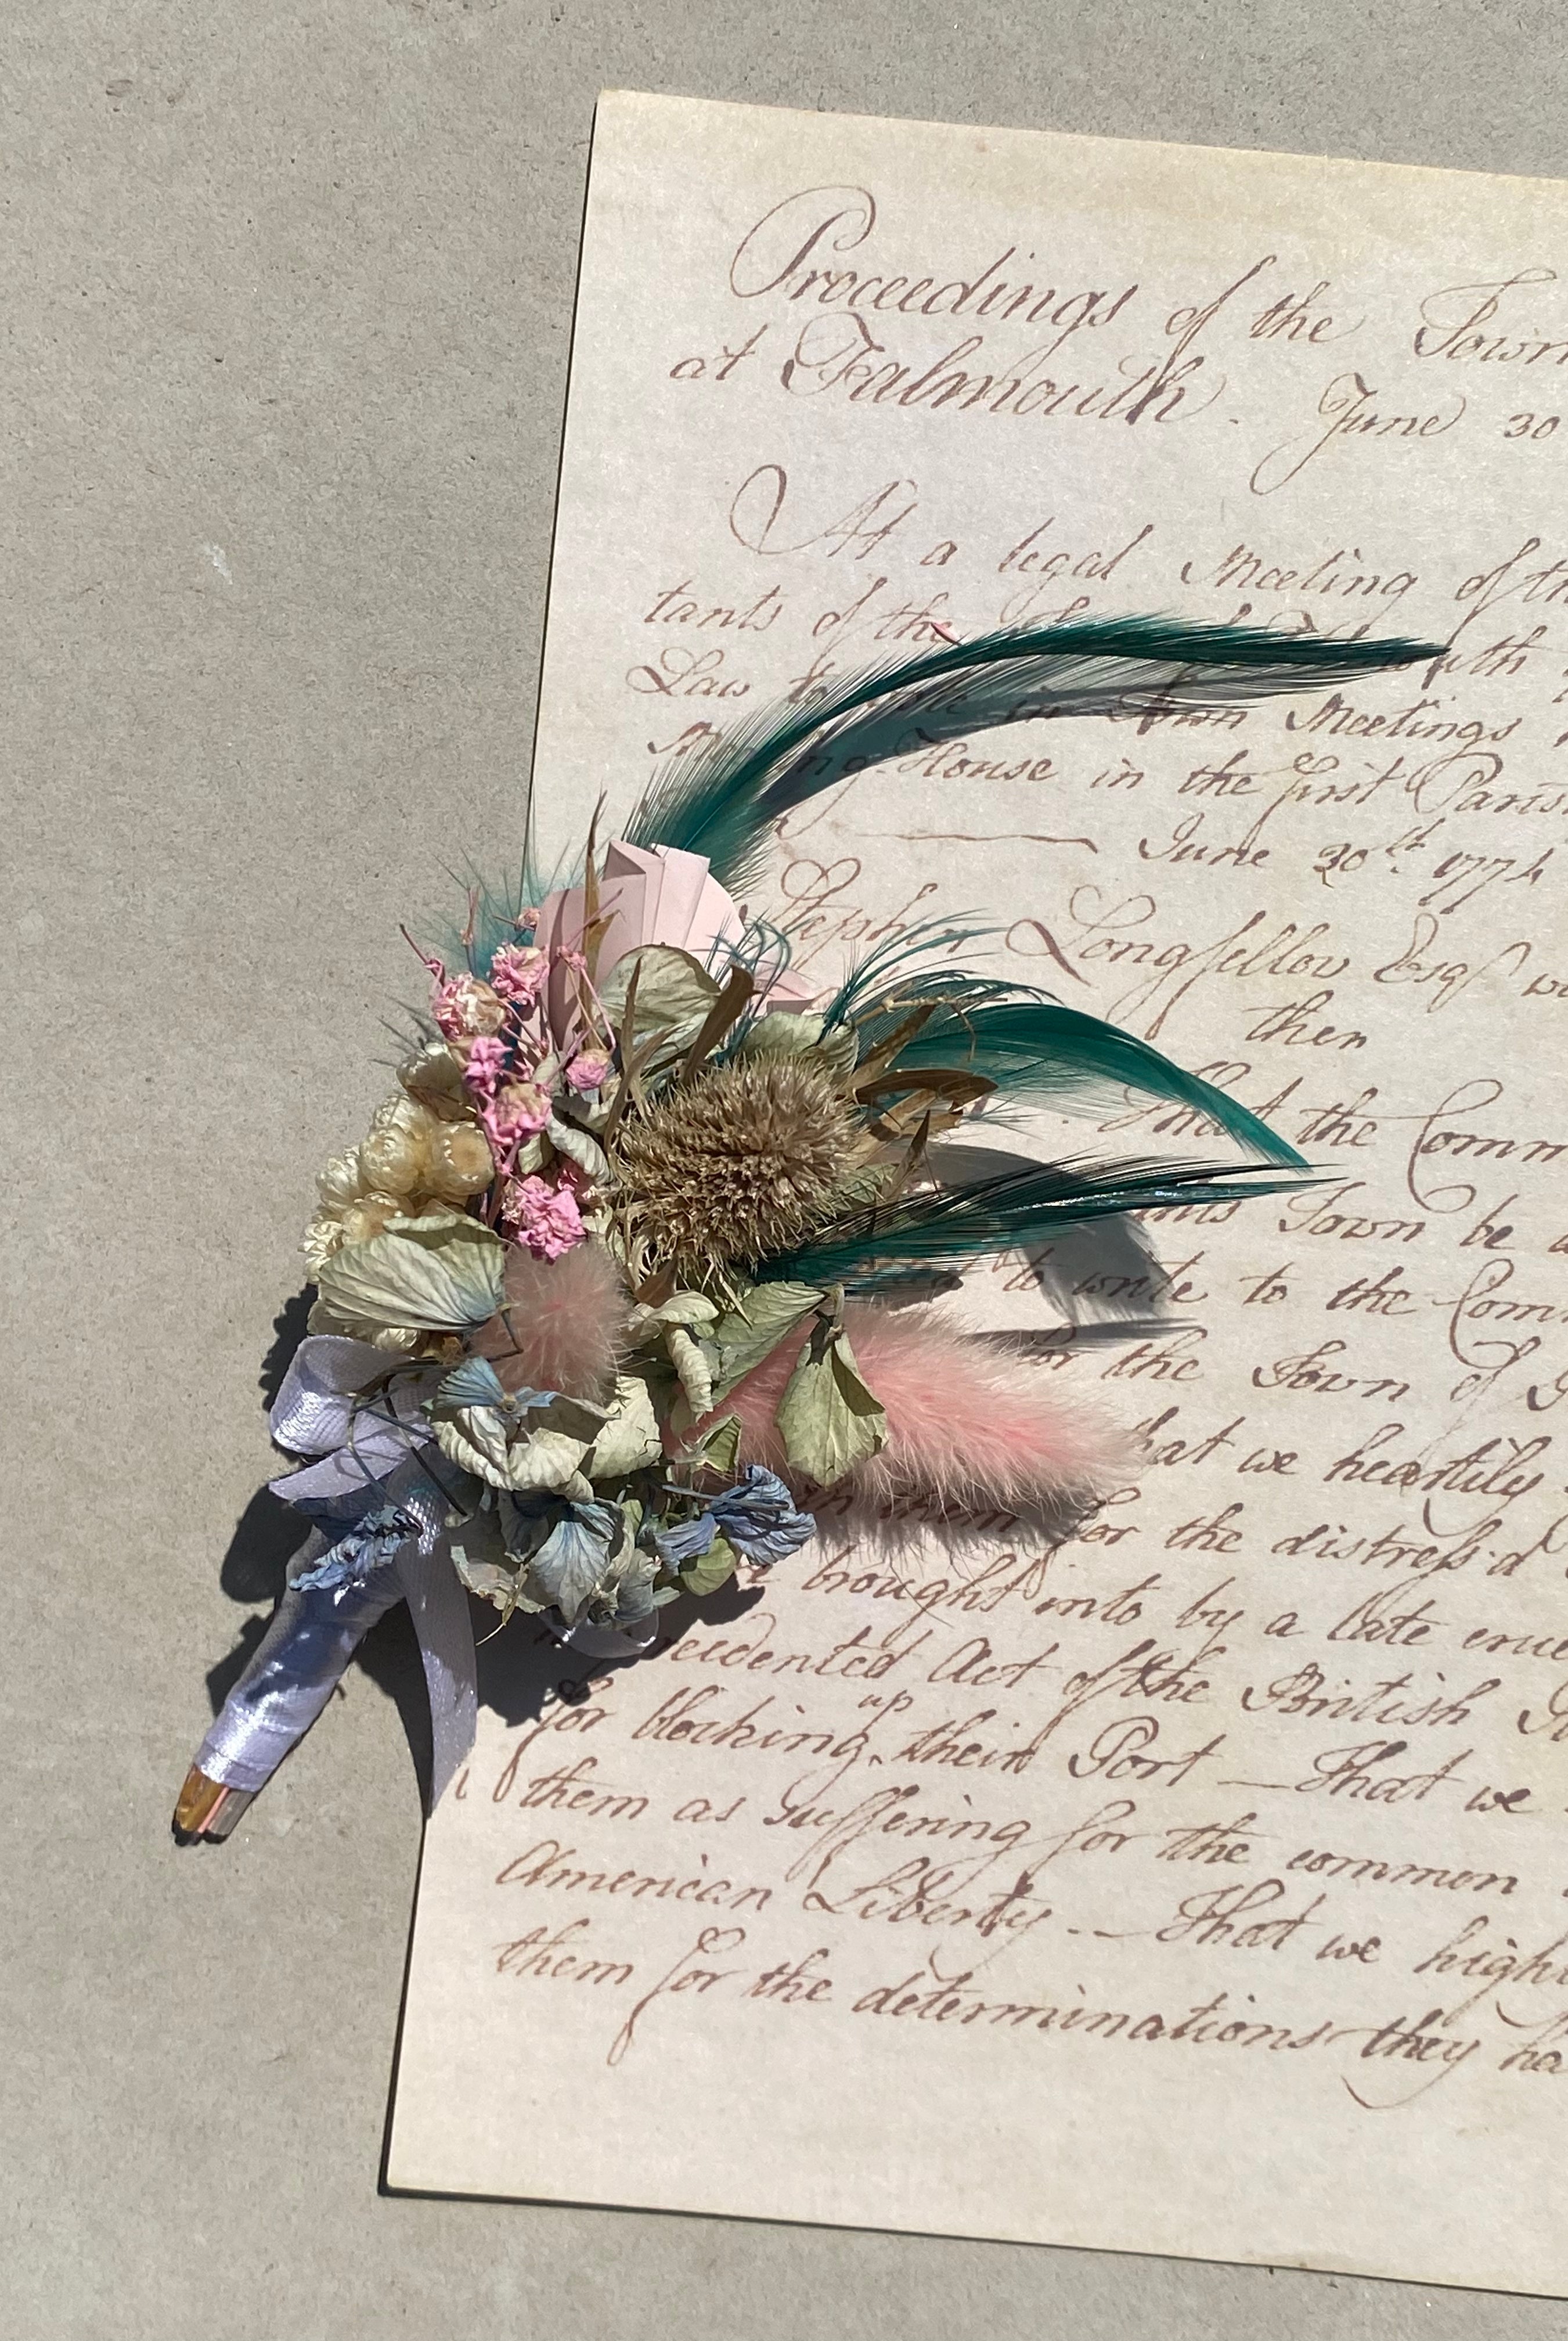 Proceedings of the Town
at Falmouth. June 30
At a legal Meeting of th
tants of the
Law to in Town Meetings
House in the first Paris
June 30th. 1774
Stephen Longfellow Esqr we
then
That the Comm
Town be
to write to the Comm
for the Town of
that we heartily
them for the distress'd
brought into by a late crue
Act of the British
for blocking up their Port — That we
them as suffering for the common
American Liberty. — That we high
them for the determinations they ha